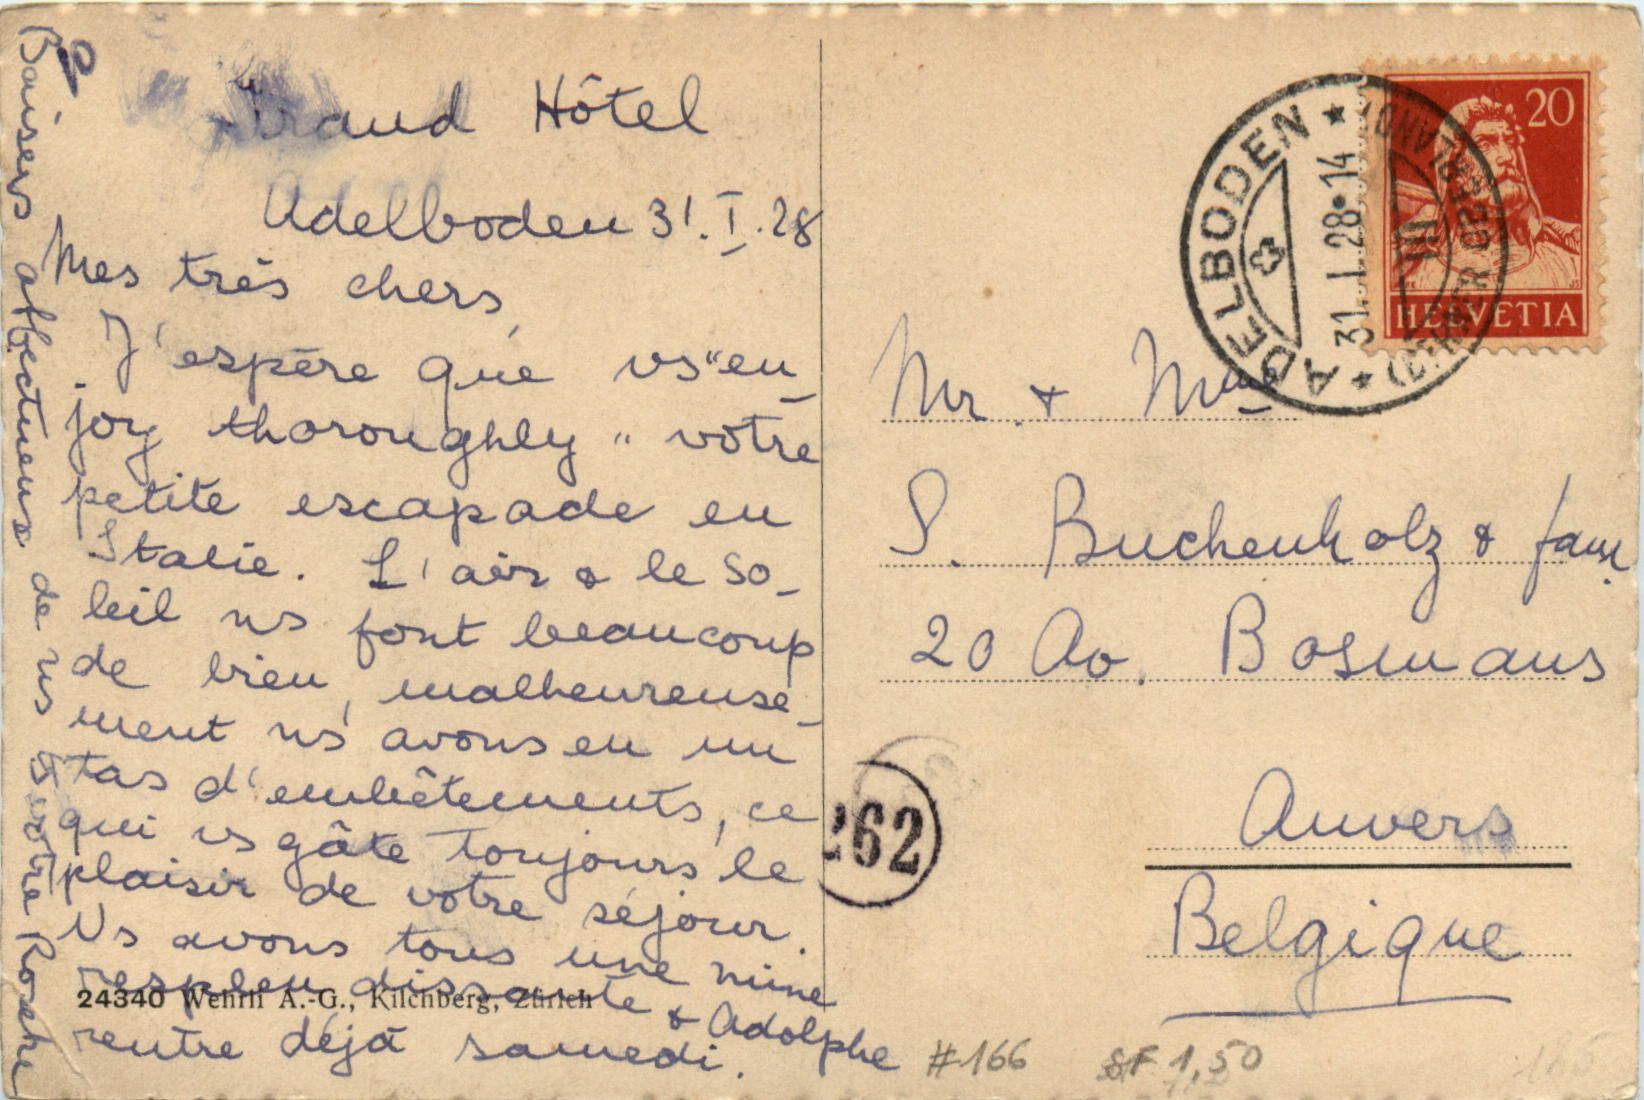 Grand Hôtel
Adelboden 31.I.28
Mes très chers,
J'espère que vs "en-
joy thoroughly" votre
petite escapade en
Italie. L'air & le so-
leil ns font beaucoup
de bien, malheureuse-
ment ns avons eu un
tas d'embêtements, ce
qui vs gâte toujours le
plaisir de votre séjour.
Ns avons tous une mine
resplendissante & Adolphe
rentre déjà samedi.
Baisers affectueux de ns
votre Rosehe
24340 Wehrli A.-G., Kilchberg, Zürich
ADELBODEN
31.I.28.14
III
(BERNER OBERLAND)
20
HELVETIA
Mr. & Mme
S. Buchenholz & fam.
20 Av. Bosmans
Anvers
Belgique
262
#166 SF 1,50